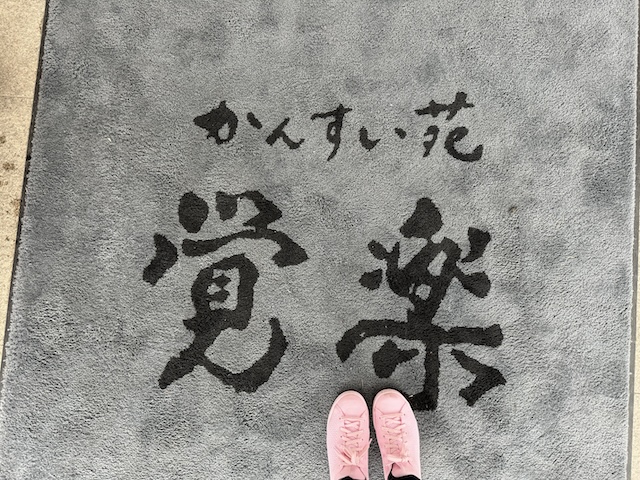 かんすい苑
覚楽